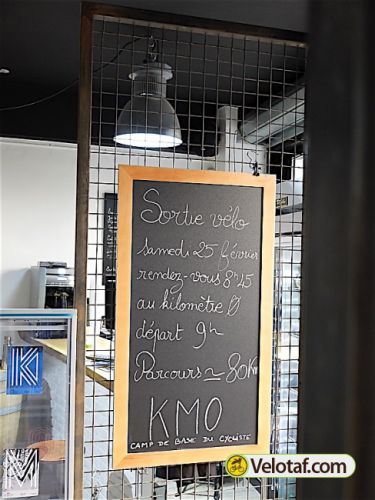 Sortie vélo
samedi 25 février
rendez-vous 8h45
au kilomètre Ø
départ 9h
Parcours ≃ 80Km
KMO
CAMP DE BASE DU CYCLISTE
K
M
Velotaf.com